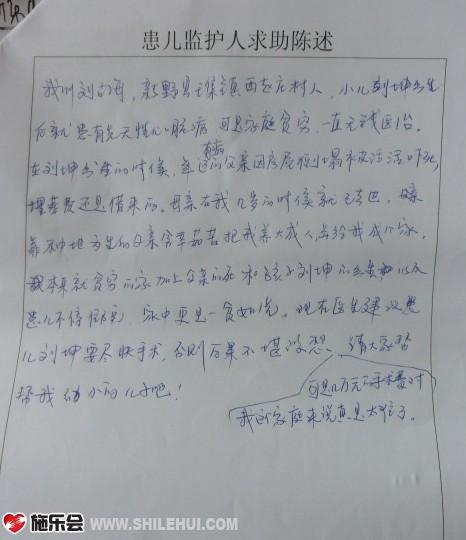 患儿监护人求助陈述
我叫刘 海，新野县 镇西赵庄村人，小儿刘坤出生
后就患有先天性心脏病 可是家庭贫穷，一直无钱医治。
在刘坤出生的时候，
父亲因房屋 倒塌 被活活 死，
埋葬费还是借来的。母亲在我几岁的时候就去世，
靠种地为生的父亲含辛茹苦把我养大成人，并给我成了家。
本来就贫穷的家加上父亲的死和孩子刘坤的 以及
患儿不停 ，家中更是一贫如洗。现在医生建议患
儿刘坤要尽快手术，否则后果不堪设想。请大家帮
帮我幼小的儿子吧！
可是几万元的手术费对
我的家庭来说真是太难了。
施乐会 WWW.SHILEHUI.COM